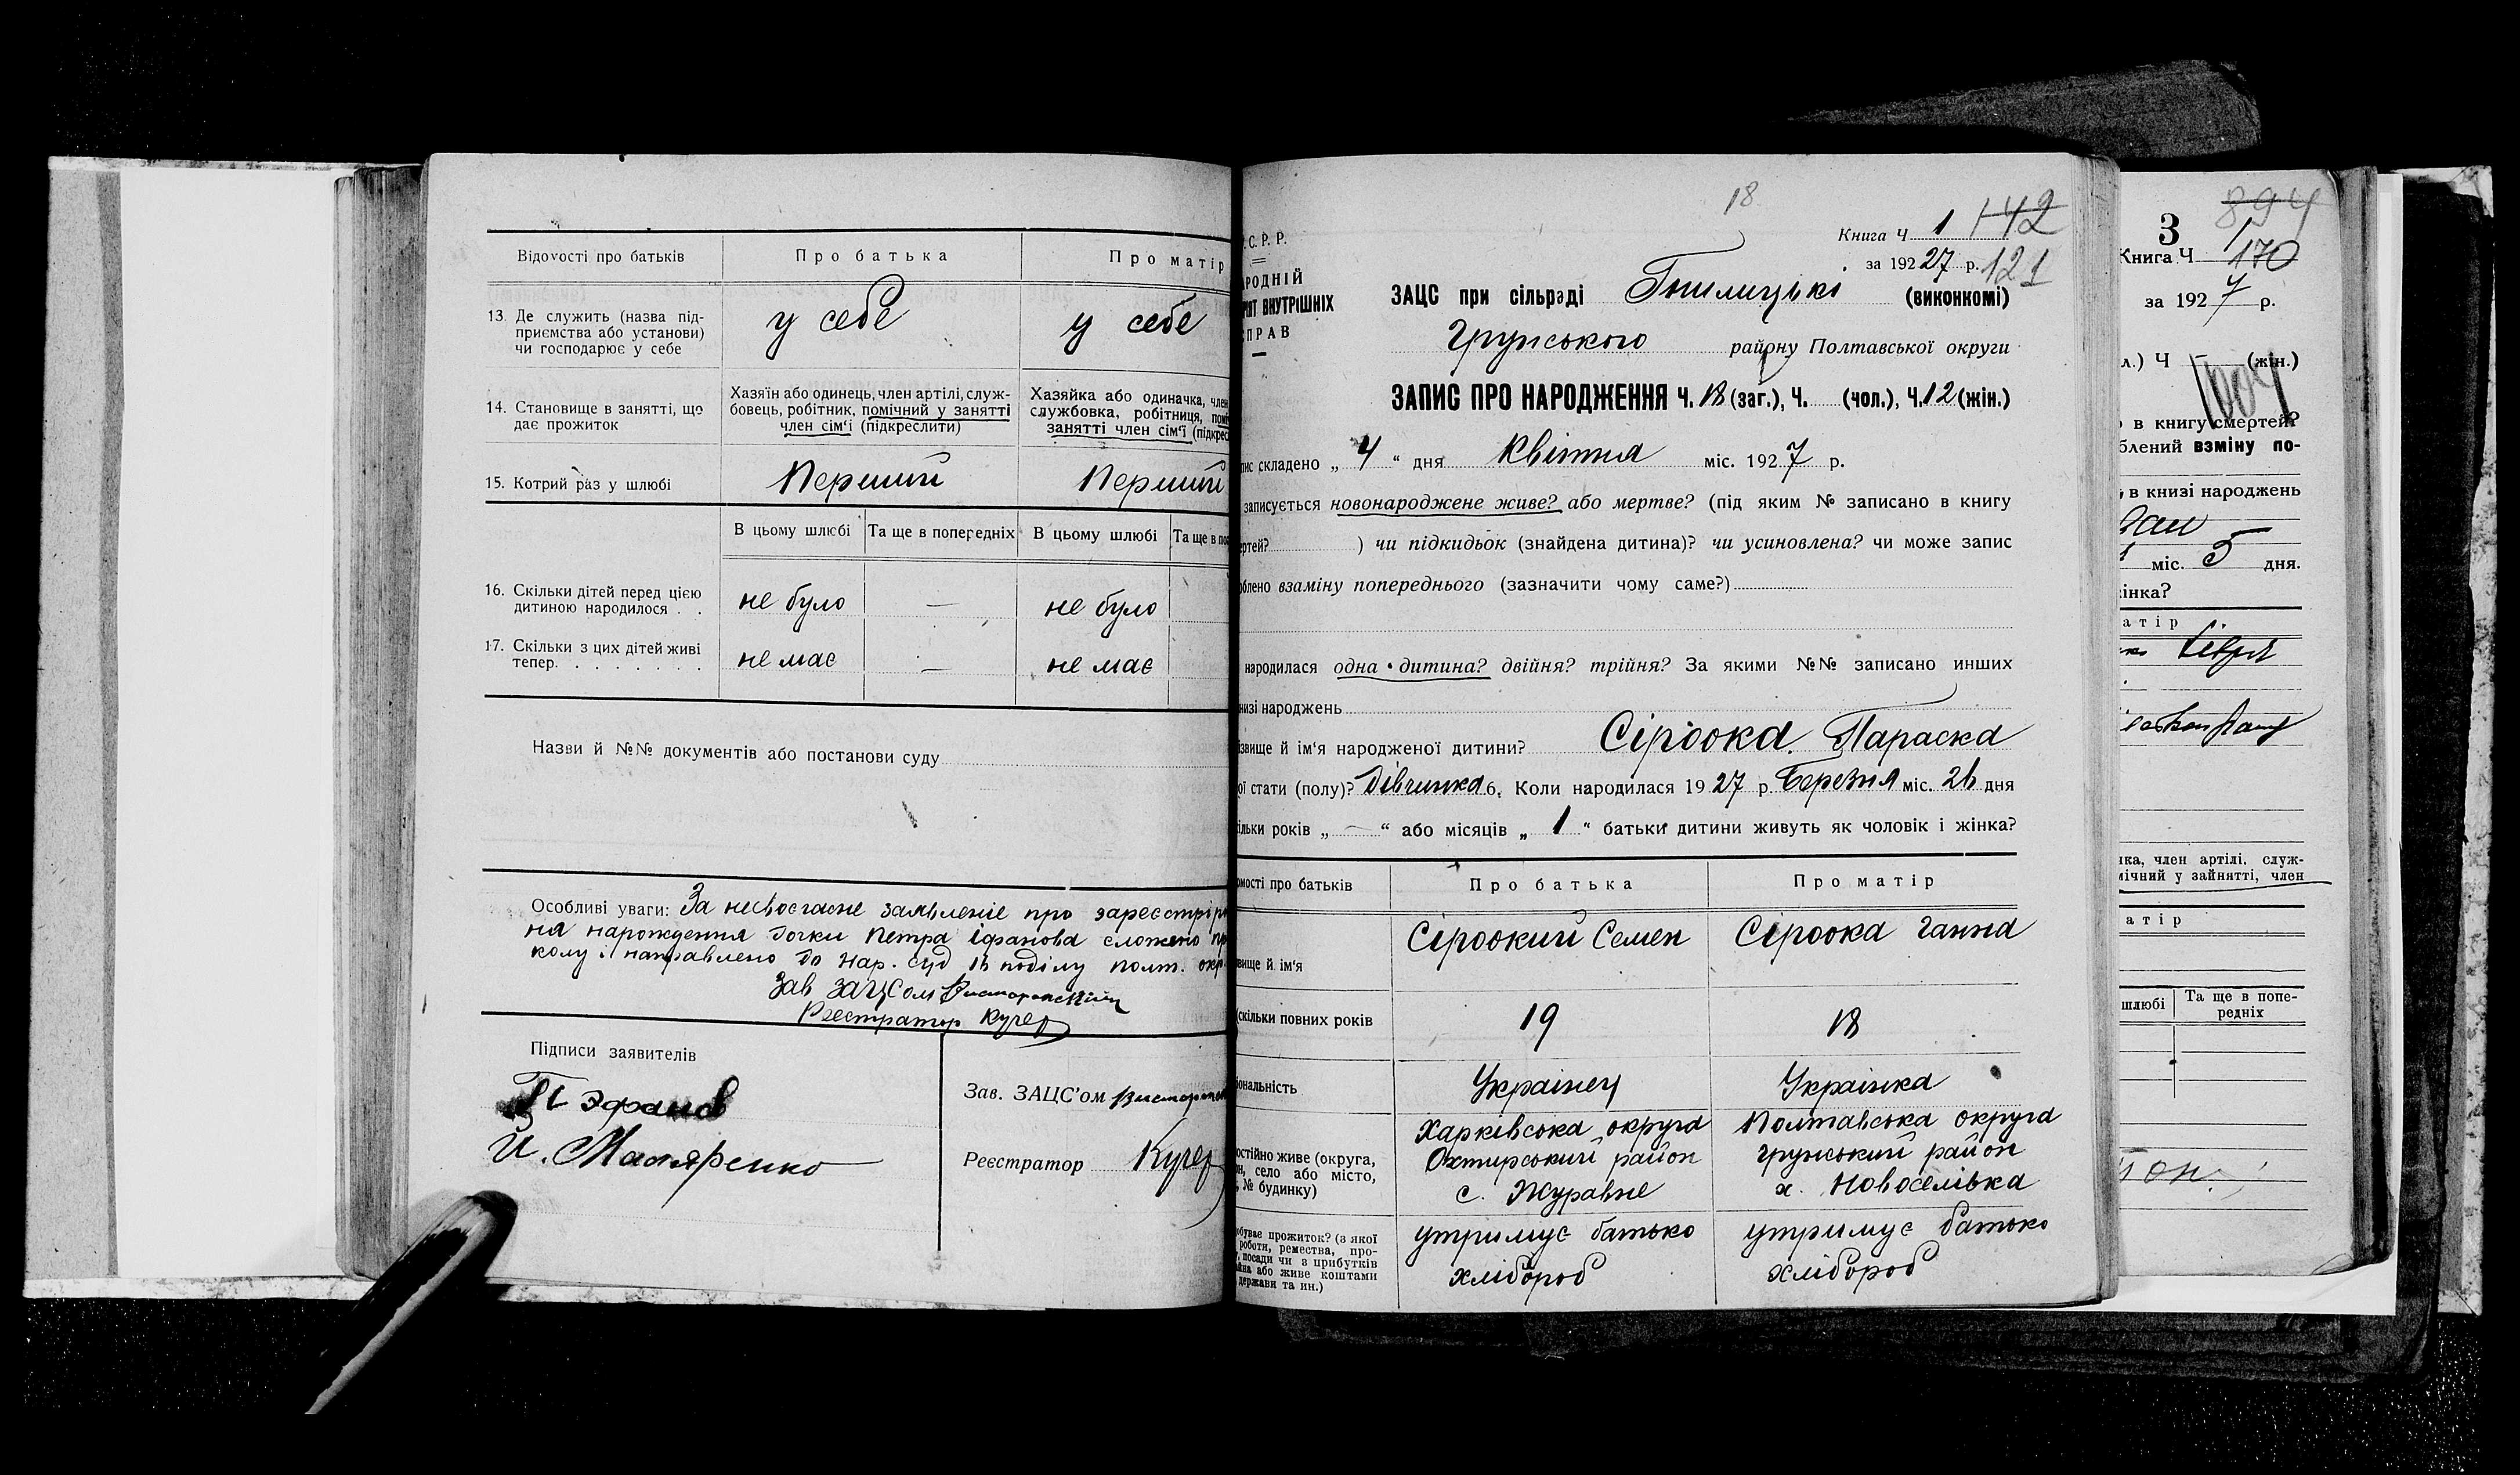 Відомості про батьків
Про батька
Про матір
13. Де служить (назва під-
приємства або установи)
чи господарює у себе
у себе
у себе
14. Становище в занятті, що
дає прожиток
Хазяїн або одинець, член артілі, служ-
бовець, робітник, помічний у занятті
член сім'ї (підкреслити)
Хазяйка або одиначка, член
службовка, робітниця,
занятті член сім'ї
15. Котрий раз у шлюбі
Перший
Перший
В цьому шлюбі
Та ще в попередніх
В цьому шлюбі
Та ще в
16. Скільки дітей перед цією
дитиною народилося . .
не було
—
не було
17. Скільки з цих дітей живі
тепер. . . . . . . .
не має
—
не має
Назви й №№ документів або постанови суду
Особливі уваги: За несвоєчасне заявленіє про зареєстрір
ня нарождення дочки Петра Іфанова сложено пр
колу і направлено до Нар. суд 16 поділу Полт. окр.
Зав ЗАЦСом
Реєстратор Кучер
Підписи заявителів
П Эфанов
И. Маляренко
Зав. ЗАЦС'ом
Реєстратор Кучер
18
Книга Ч 1 142
за 1927 р. 121
С. Р. Р.
РОДНІЙ
ВНУТРІШНІХ
ПРАВ
ЗАЦС при сільраді (виконкомі)
Грунського району Полтавської округи
ЗАПИС ПРО НАРОДЖЕННЯ Ч. 18 (заг.), Ч. (чол.), Ч. 12 (жін.)
складено „ 4 " дня Квітня міс. 1927 р.
записується новонароджене живе? або мертве? (під яким № записано в книгу
) чи підкидьок (знайдена дитина)? чи усиновлена? чи може запис
взаміну попереднього (зазначити чому саме?)
народилася одна дитина? двійня? трійня? За якими №№ записано инших
народжень
й ім'я народженої дитини? Сіроока Параска
стати (полу)? Дівчинка 6. Коли народилася 1927 р. Березня міс. 26 дня
років „ — " або місяців „ 1 " батьки дитини живуть як чоловік і жінка?
про батьків
Про батька
Про матір
й ім'я
Сіроокий Семен
Сіроока Ганна
скільки повних років
19
18
Українец
Українка
живе (округа,
село або місто,
№ будинку)
Харківська округа
Охтирський район
с. Журавне
Полтавська округа
Грунський район
х. Новоселівка
прожиток? (з якої
роботи, ремества, про-
посади чи з прибутків
або живе коштами
держави та ин.)
утримує батько
хлібороб
утримує батько
хлібороб
3
894
Книга Ч 1
170
за 1927 р.
Ч — (жін.)
1004
в книгу смертей?
взміну по-
в книзі народжень
міс. 5 дня.
член артілі, служ-
у зайнятті, член
шлюбі
Та ще в попе-
редніх